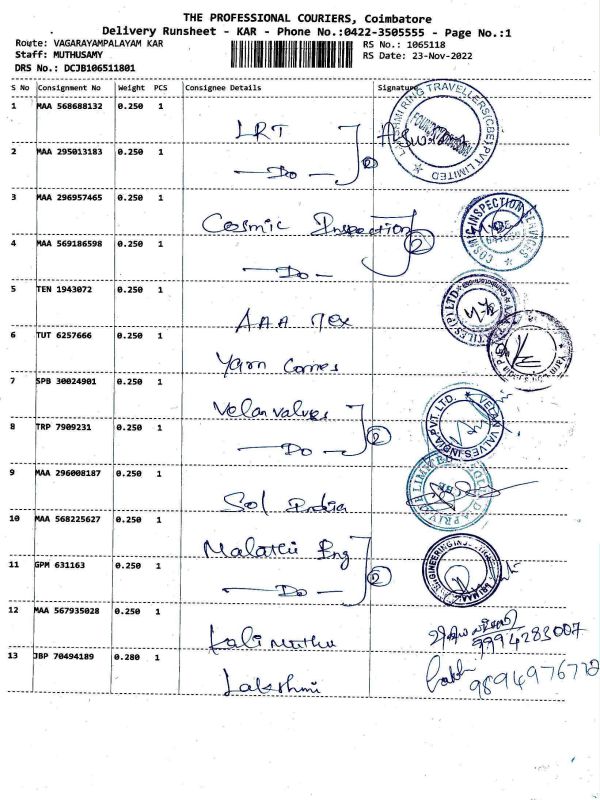 THE PROFESSIONAL COURIERS, Coimbatore
Delivery Runsheet - KAR - Phone No.:0422-3505555 - Page No.:1
Route: VAGARAYAMPALAYAM KAR
RS No.: 1065118
Staff: MUTHUSAMY
RS Date: 23-Nov-2022
DRS No.: DCJB106511801
S No Consignment No Weight PCS Consignee Details Signature
1 MAA 568688132 0.250 1
LRT
2 MAA 295013183 0.250 1
Do 2
3 MAA 296957465 0.250 1
Cosmic Inspection
4 MAA 569186598 0.250 1
2
Do
5 TEN 1943072 0.250 1
AAA Tex
6 TUT 6257666 0.250 1
Yarn Cornes
7 SPB 30024901 0.250 1
Velan valves
8 TRP 7909231 0.250 1
Do 2
9 MAA 296008187 0.250 1
Sol India
10 MAA 568225627 0.250 1
Malathi Eng
11 GPM 631163 0.250 1
Do 2
12 MAA 567935028 0.250 1
Kali muthu
9794283007
13 JBP 70494189 0.280 1
Lakshmi
COSMIC INSPECTION SERVICES
VELAN VALVES INDIA PVT. LTD.